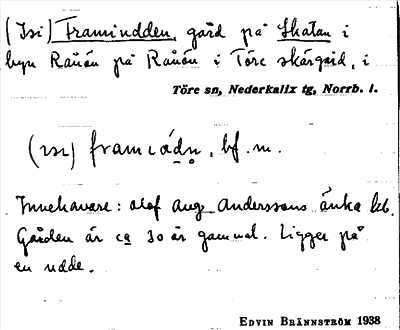 (Isi) Framiudden, gård på Skatan i
byn Rånön på Rånön i Töre skärgård, i
Töre sn, Nederkalix tg, Norrb. l.
(ɪsɪ) framɩ bf. m.
Innehavare: Olof Aug. Anderssons änka
Gården är ca 30 år gammal. Ligger på
en udde.
EDVIN BRÄNNSTRÖM 1938